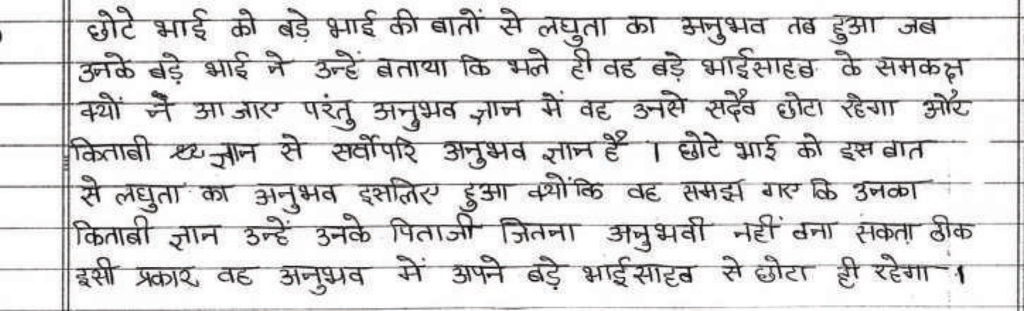 छोटे भाई को बड़े भाई की बातों से लघुता का अनुभव तब हुआ जब
उनके बड़े भाई ने उन्हें बताया कि भले ही वह बड़े भाईसाहब के समकक्ष
क्यों न आ जाए परंतु अनुभव ज्ञान में वह उनसे सदैव छोटा रहेगा और
किताबी ज्ञान से सर्वोपरि अनुभव ज्ञान है । छोटे भाई को इस बात
से लघुता का अनुभव इसलिए हुआ क्योंकि वह समझ गए कि उनका
किताबी ज्ञान उन्हें उनके पिताजी जितना अनुभवी नहीं बना सकता ठीक
इसी प्रकार वह अनुभव में अपने बड़े भाईसाहब से छोटा ही रहेगा ।